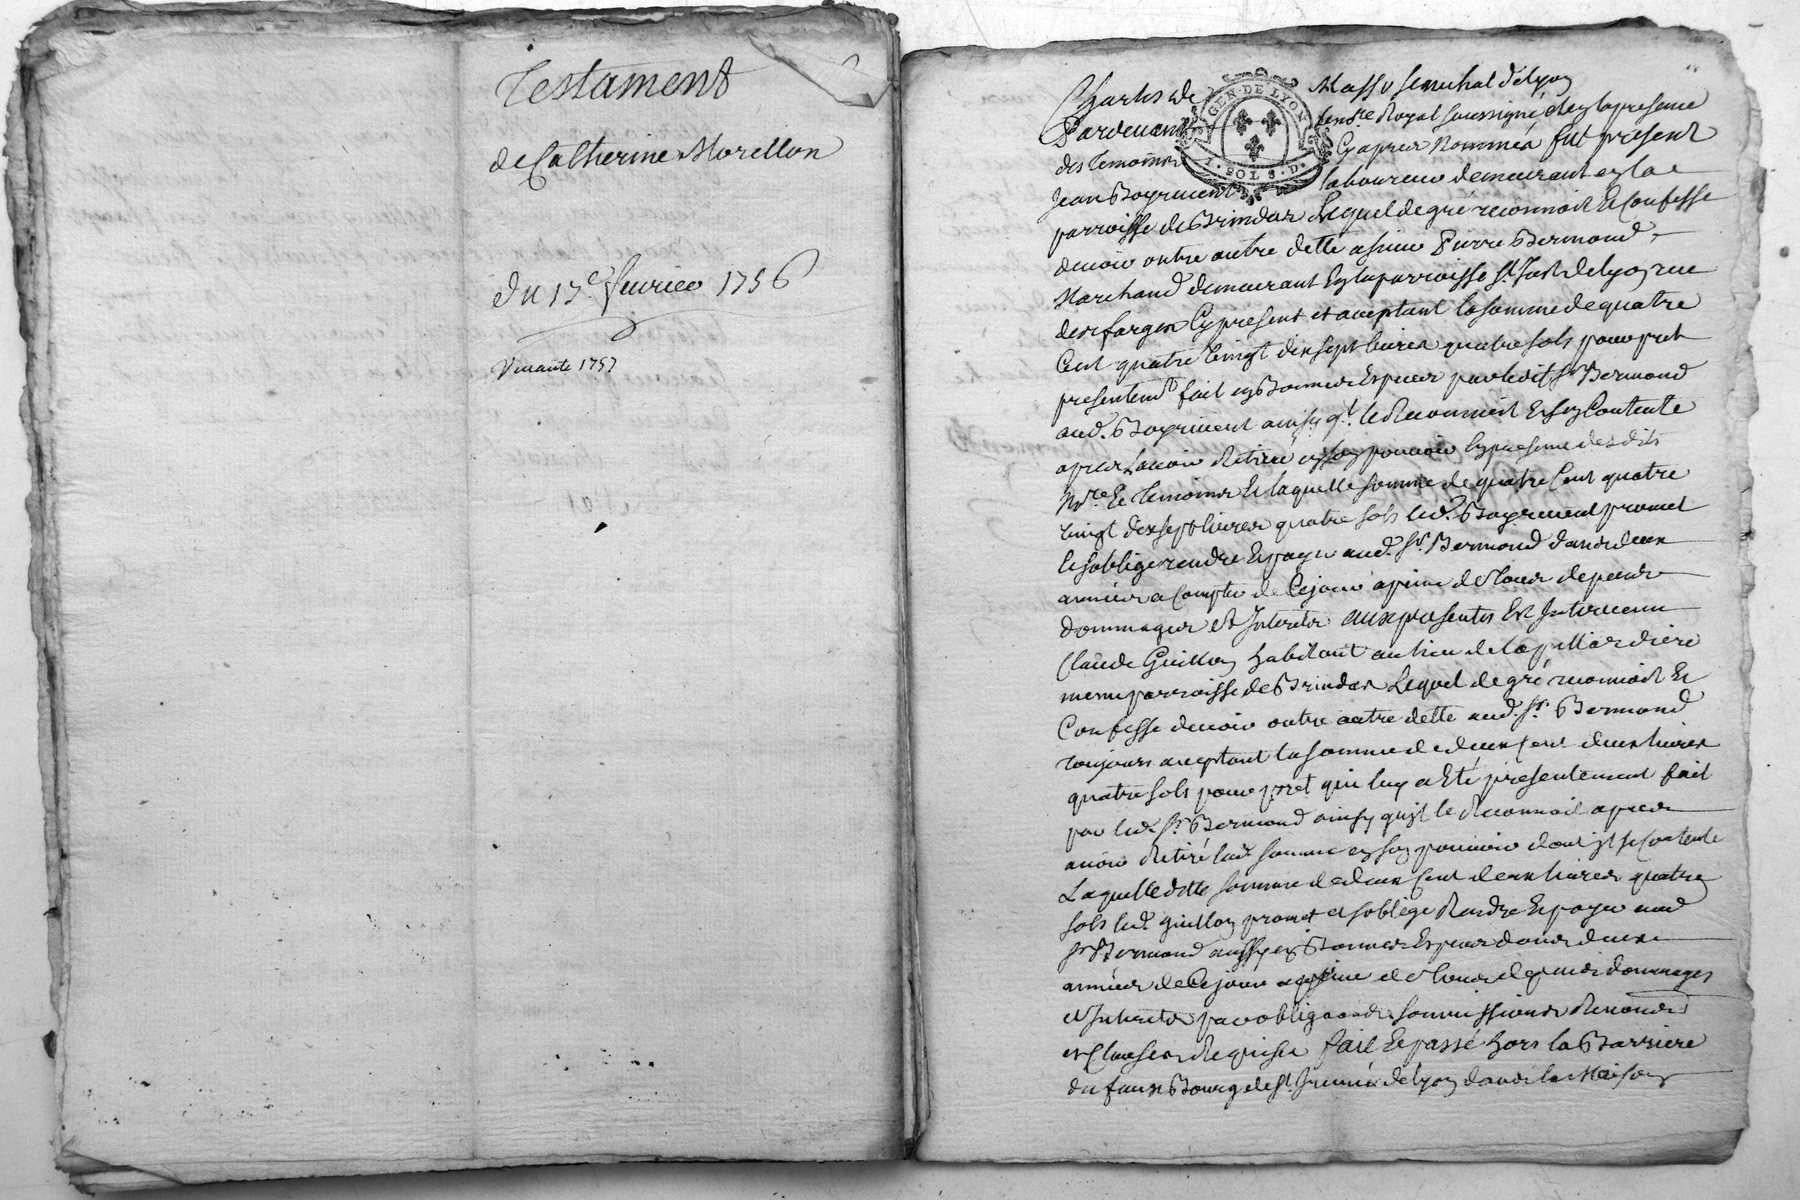 Testament
de Catherine Morellon
du 17e fevrier 1756
Vacante 1757
GEN·DE LYON
1·SOLS·D·
Charles de Masso senechal de lyon
Pardevant le no.re Royal soussigné et en la presence
des temoins Cy apres Nommés fut présent
Jean laboureur demeurant en la
parroisse de Brindas Lequel de gré reconnoit Et Confesse
devoir outre autre dette a sieur Pierre Bermond
Marchand demeurant En la parroisse St. Just de lyon rue
des farges Cy present et aceptant la somme de quatre
Cent quatre Vingt dix sept livres quatre sols pour pret
presentemt. fait en Bonnes Especes par ledit Sr. Bermond
aud. ainsy q'il le Reconnoit Et sen Contente
apres Lavoir Retiré en son pouvoir En presence desdits
No.re Et Temoins Et laquelle somme de quatre Cent quatre
Vingt dix sept livres quatre sols led. promet
Et soblige rendre Et payer aud. Sr. Bermond dans deux
années a Compter de Ce jour a peine de tous depens
dommages Et Interets aux presentes Est Intervenu
Claude Guillon habitant au lieu de la pillardiere
meme parroisse de Brindas Lequel de gré reconnoit Et
Confesse devoir outre autre dette aud. Sr. Bermond
toujours aceptant la somme de deux Cent deux livres
quatre sols pour pret qui luy a Eté presentement fait
par led. Sr. Bermond ainsy quil le Reconnoit apres
avoir Retiré lad. somme en son pouvoir dont il se Contente
Laquelle dette somme de deux Cent deux livres quatre
sols led. guillon promet et soblige Rendre Et payer aud
Sr Bermond aussy en Bonnes Especes dans deux
années de Ce jour a peine de tous depens dommages
et Interets par obligaons. soumissions Renons
et Clauses Requises fait Et passé hors la Barriere
du faux Bourg de St. Irenée de lyon dans la Maison